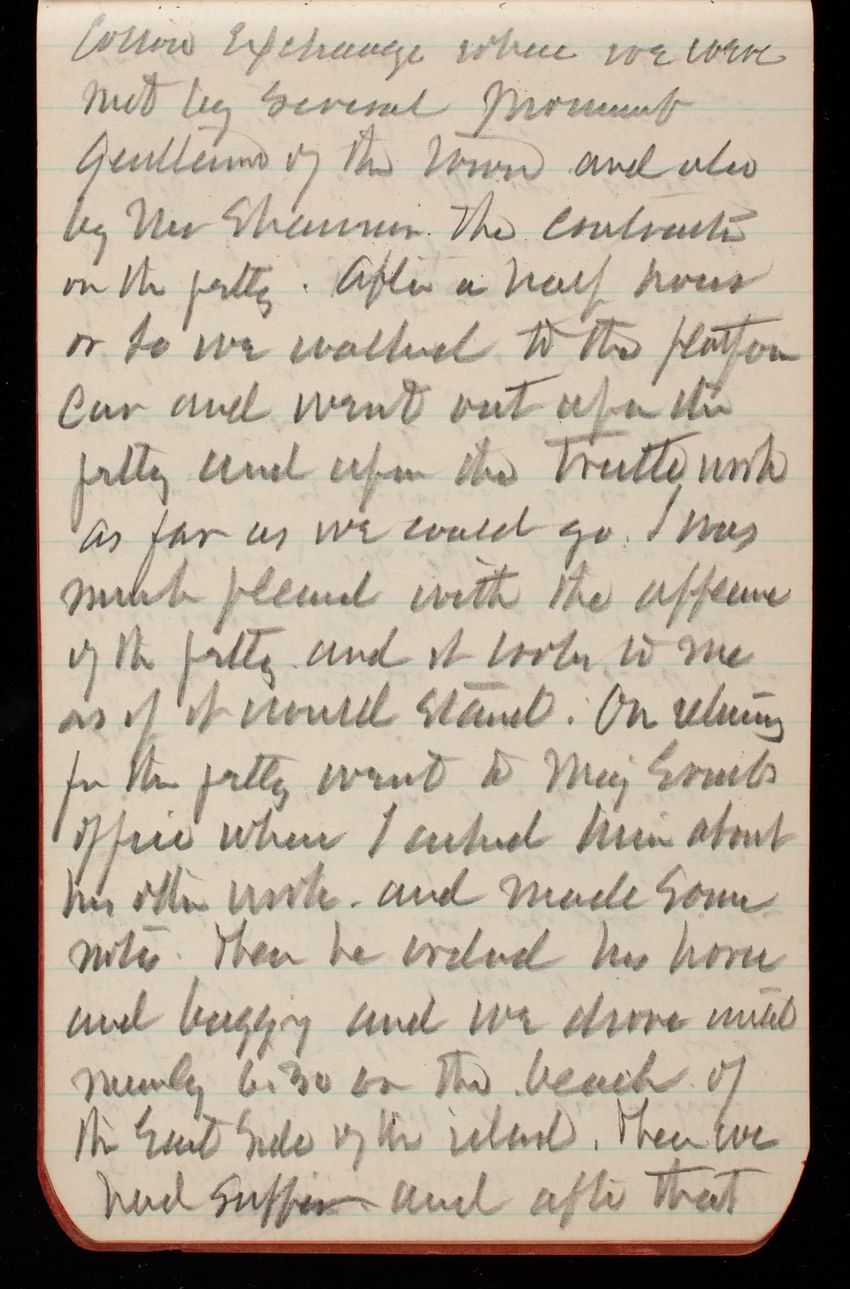 Cotton Exchange where we were
met by several prominent
Gentlemen of the Town and also
by Mr Shannon. The contractor
on the jetty. After a half hour
or so we walked to the platform
car and went out upon the
jetty and upon the trestle work
as far as we could go. I was
much pleased with the appearance
of the jetty and it looks to me
as if it would stand. On returning
from the jetty went to Maj
office where I asked him about
his other work. and made some
notes. Then he ordered his horse
and buggy and we drove until
nearly 6:30 on the beach of
the East Side of the island. Then we
had supper and after that